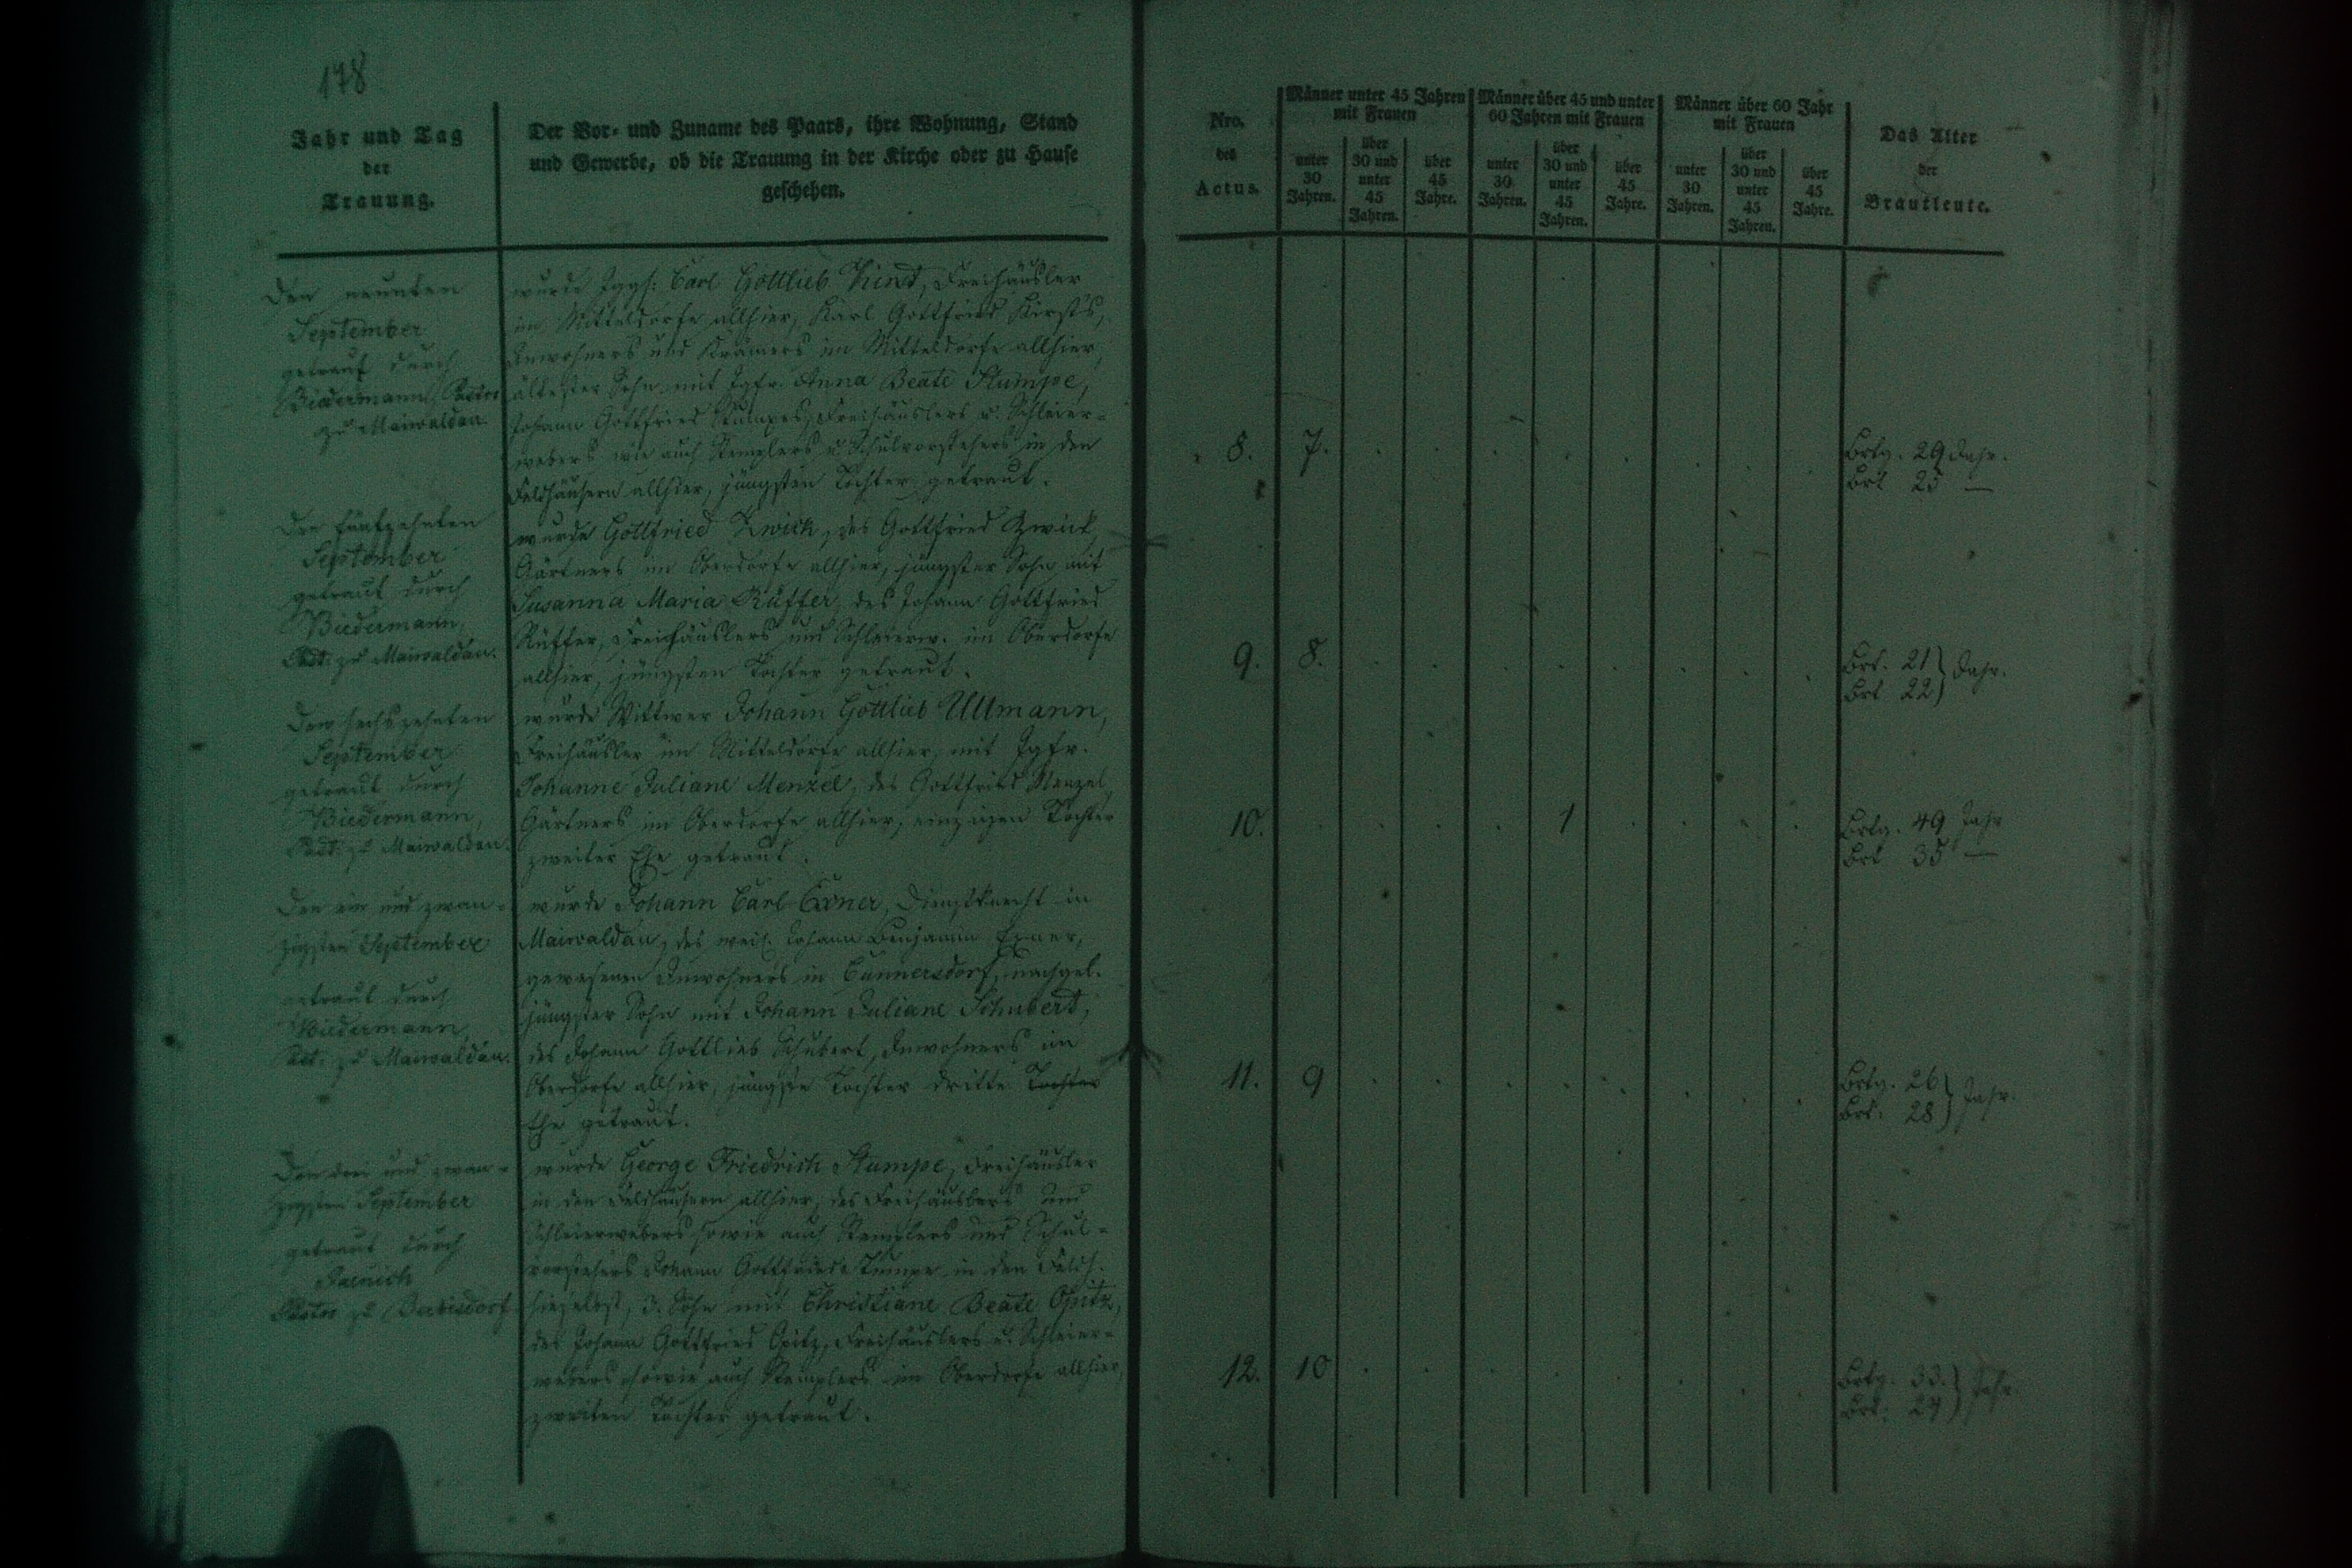 178
Jahr und Tag
der
Trauung.
Der Vor- und Zuname des Paars, ihre Wohnung, Stand
und Gewerbe, ob die Trauung in der Kirche oder zu Hause
geschehen.
Den neunten
September
getraut durch
Biedermann, Pastor
zu Maiwaldau.
wurde Jggs: Carl Gottlieb Kirst, Freihäusler
im Mitteldorfe allhier, Karl Gottfried Kirst's,
Inwohners und Krämers im Mitteldorfe allhier,
ältester Sohn mit Jgfr. Anna Beate Stumpe,
Johann Gottfried Stumpes, Freihäuslers u. Schleier-
webers wie auch Stemplers u. Schulvorstehers in den
Feldhäusern allhier, jüngsten Tochter getraut.
Den fünfzehnten
September
getraut durch
Biedermann,
Past: zu Maiwaldau.
wurde Gottfried Zwick, des Gottfried Zwick,
Gärtners im Oberdorfe allhier, jüngster Sohn mit
Susanna Maria Rüffer, des Johann Gottfried
Rüffer, Freihäuslers und Schleierw. im Oberdorfe
allhier, jüngsten Tochter getraut.
Den sechszehnten
September
getraut durch
Biedermann,
Past: zu Maiwaldau.
wurde Wittwer Johann Gottlieb Ullmann,
Freihäusler im Mitteldorfe allhier, mit Jgfr.
Johanne Juliane Menzel, des Gottfried Menzel,
Gärtners im Oberdorfe allhier, einzigen Tochter
zweiter Ehe getraut.
Den ein und zwan-
zigsten September
getraut durch
Biedermann,
Past: zu Maiwaldau.
wurde Johann Carl Exner, Dienstknecht in
Maiwaldau, des weil. Johann Benjamin Exner,
gewesenen Inwohners in Cunnersdorf, nachgel.
jüngster Sohn mit Johann Juliane Schubert,
des Johann Gottlieb Schubert, Inwohners im
Oberdorfe allhier, jüngste Tochter dritte Tochter
Ehe getraut.
Den drei und zwan-
zigsten September
getraut durch
Pastor zu Berbisdorf
wurde George Friedrich Stumpe, Freihäusler
in den Feldhäusern allhier, des Freihäuslers und
Schleierwebers sowie auch Stemplers und Schul-
vorstehers Johann Gottfriede Stumpe in den Feldh.
hieselbst, 3. Sohn mit Christiane Beate Opitz,
des Johann Gottfried Opitz, Freihäuslers u. Schleier-
webers sowie auch Stemplers im Oberdorfe allhier,
zweiten Tochter getraut.
Nro.
des
Actus.
Männer unter 45 Jahren
mit Frauen
unter
30
Jahren.
über
30 und
unter
45
Jahren.
über
45
Jahre.
Männer über 45 und unter
60 Jahren mit Frauen
unter
30
Jahren.
über
30 und
unter
45
Jahren.
über
45
Jahre.
Männer über 60 Jahr
mit Frauen
unter
30
Jahren.
über
30 und
unter
45
Jahren.
über
45
Jahre.
Das Alter
der
Brautleute.
8. 7. Brtg. 29 Jahr.
Brt 25 —
9. 8. Brt. 21 } Jahr.
Brt 22
10. 1 Brtg. 49 Jahr
Brt 35 —
11. 9 Brtg. 26 } Jahr.
Brt. 28
12. 10 Brtg. 33. } Jahr.
Brt: